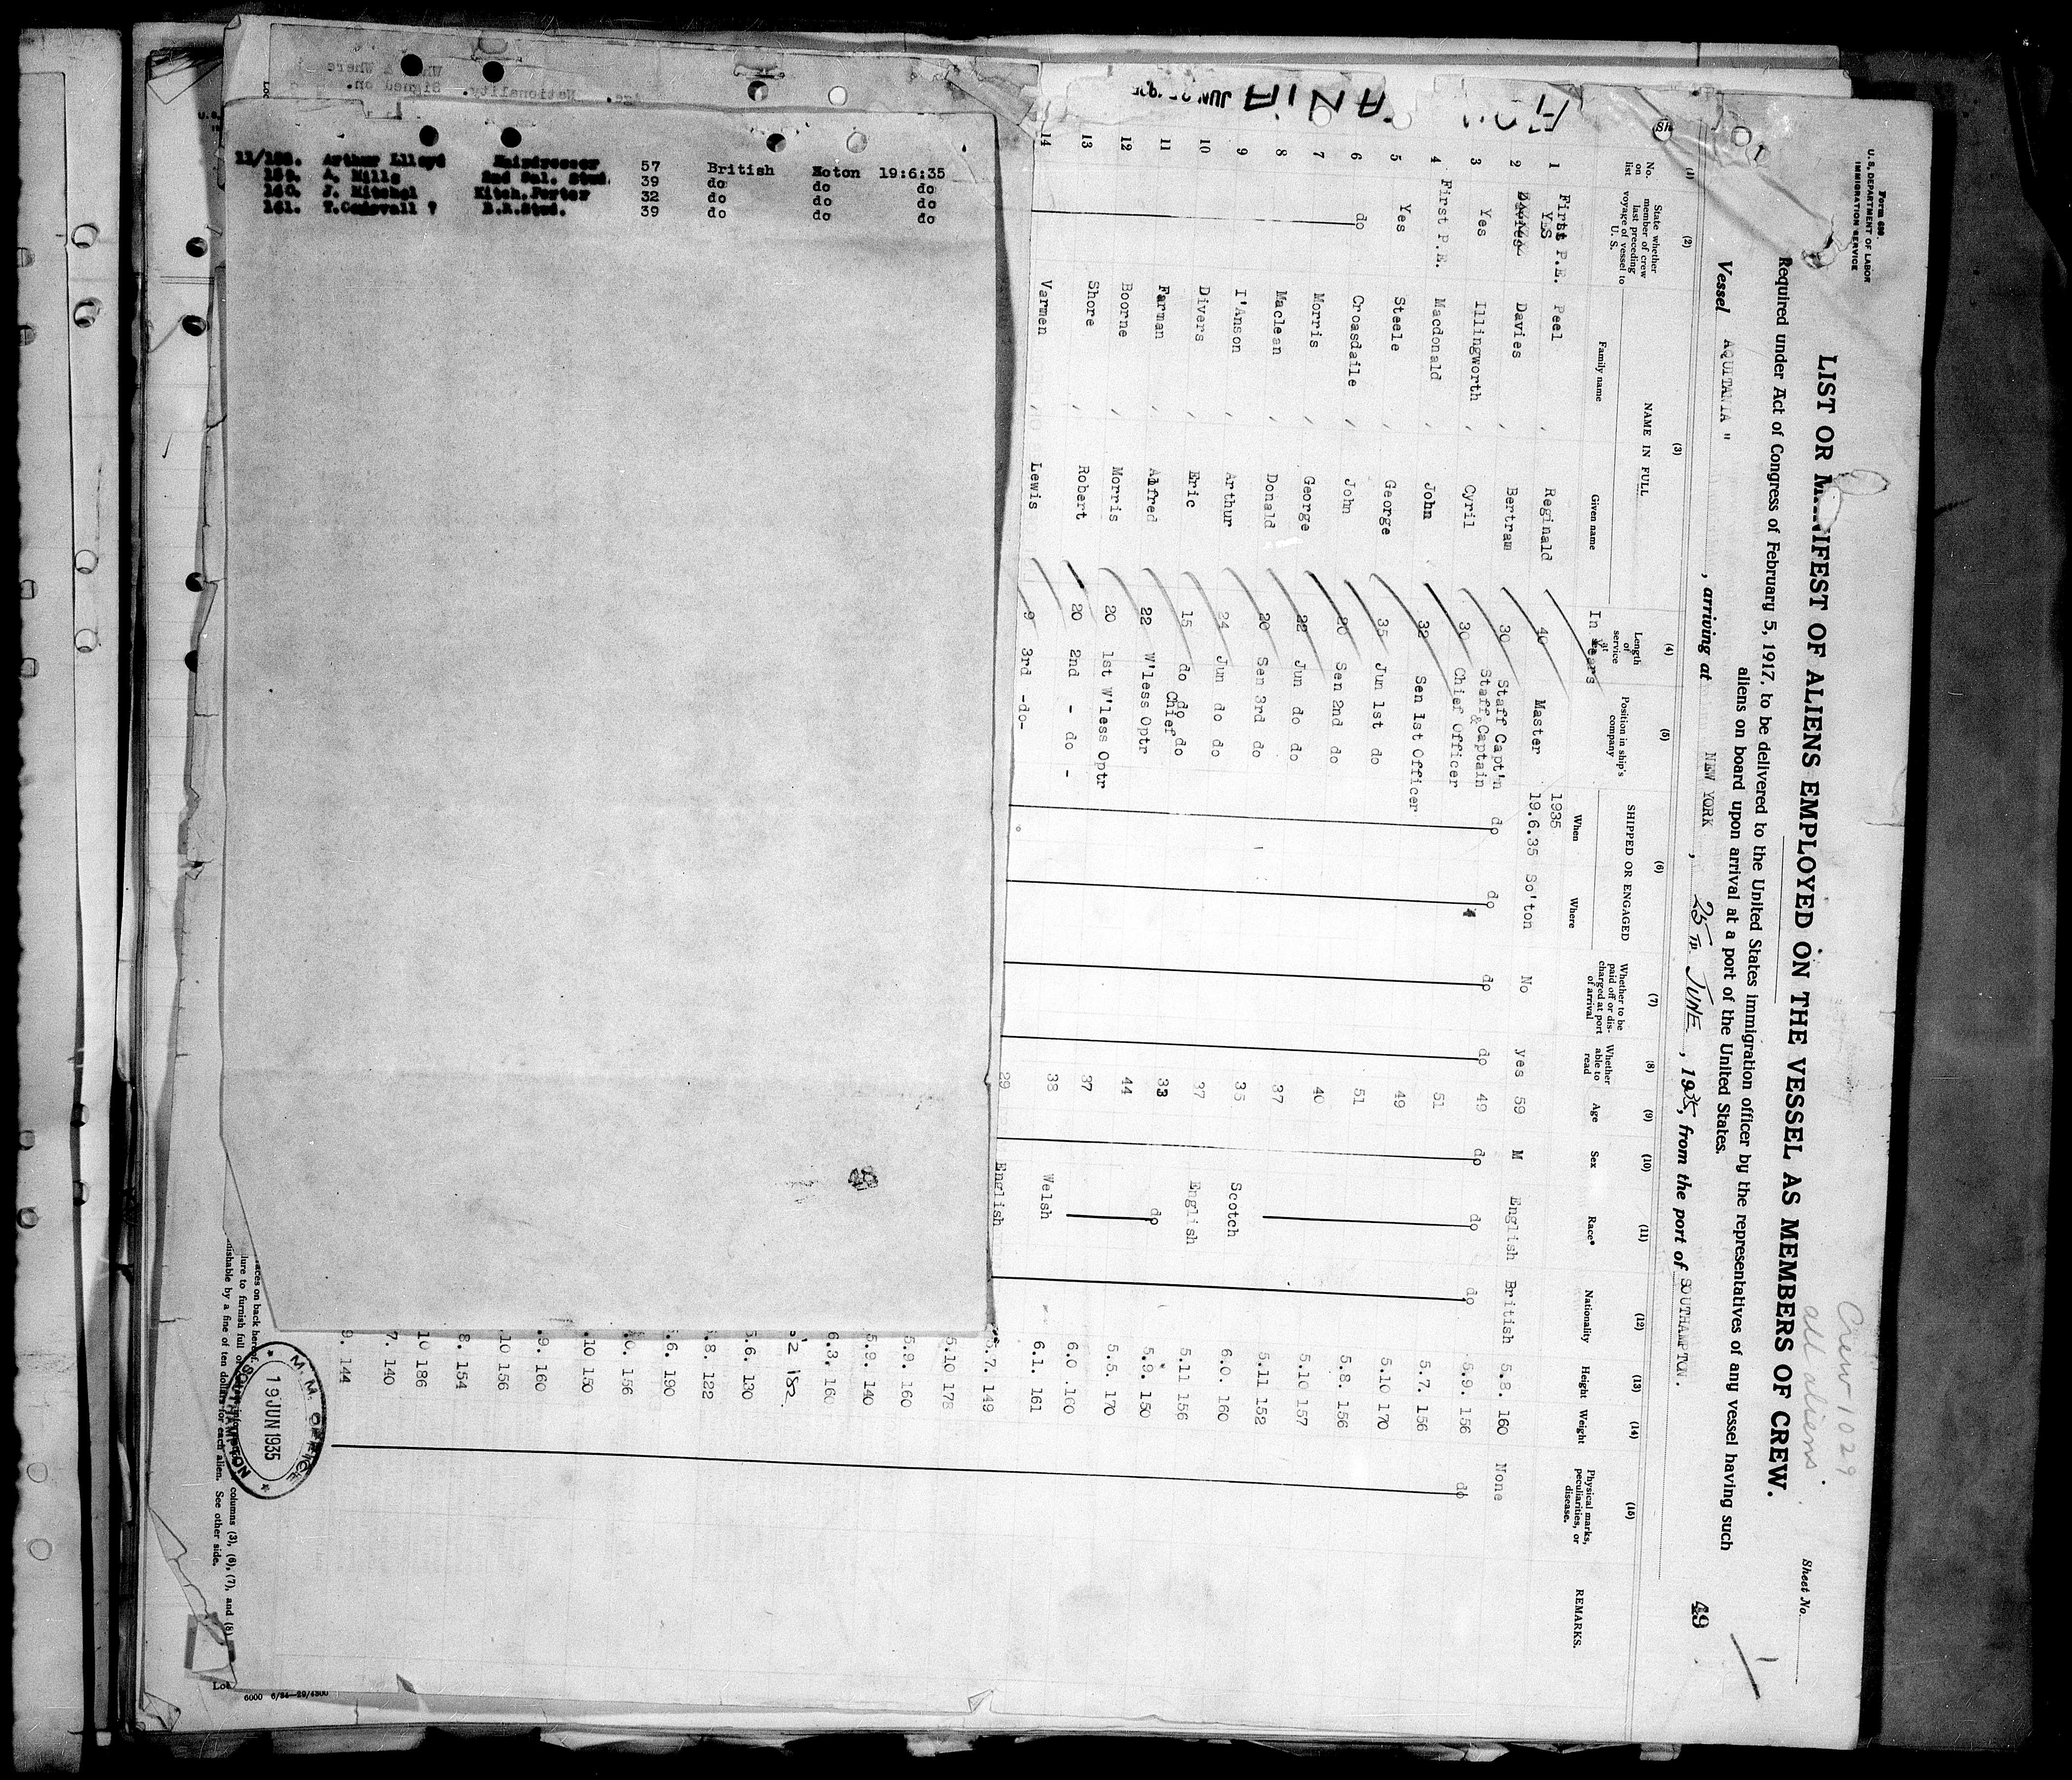 11/158. Arthur Lloyd Hairdresser 57 British Soton 19:6:35
159. A. Mills 2nd Sal. Stwd. 39 do do do
160. J. Mitchel Kitch.Porter 32 do do do
161. B.R.Stwd. 39 do do do
Form 680
U. S. DEPARTMENT OF LABOR
IMMIGRATION SERVICE
Crew 1029
all aliens.
Sheet No.
LIST OR MANIFEST OF ALIENS EMPLOYED ON THE VESSEL AS MEMBERS OF CREW.
Required under Act of Congress of February 5, 1917, to be delivered to the United States immigration officer by the representatives of any vessel having such
aliens on board upon arrival at a port of the United States.
49
Vessel AQUITANIA " , arriving at NEW YORK , 25TH JUNE , 1935, from the port of SOUTHAMPTON.
(1) (2) (3) (4) (5) (6) (7) (8) (9) (10) (11) (12) (13) (14) (15)
No. on list
State whether member of crew last preceding voyage of vessel to U. S.
NAME IN FULL
Family name Given name
Length of service at
In Years
Position in ship's company
SHIPPED OR ENGAGED
When Where
Whether to be paid off or discharged at port of arrival
Whether able to read
Age
Sex
Race*
Nationality
Height
Weight
Physical marks, peculiarities, or disease.
REMARKS.
1935
1 First P.E. Yes Peel Reginald 40 Master 19.6.35 So'ton No yes 59 M English British 5.8. 160 None
2 Davies Bertram 30 Staff Capt'n do do do do 49 do do do 5.9. 156 do
3 Yes Illingworth Cyril 30 Staff Captain & Chief Officer 51 5.7. 156
4 First P.E. Macdonald John 32 Sen 1st Officer 49 5.10 170
5 Yes Steele George 35 Jun 1st do 51 5.8. 156
6 do Croasdaile John 26 Sen 2nd do 40 5.10 157
7 Morris George 22 Jun do do 37 5.11 152
8 Maclean Donald 20 Sen 3rd do 35 Scotch 6.0. 160
9 I'Anson Arthur 24 Jun do do 37 English 5.11 156
10 Divers Eric 15 do do do 33 do 5.9. 150
11 Farman Alfred 22 Chief W'less Optr 44 5.5. 170
12 Boorne Morris 20 1st W'less Optr 37 6.0 .160
13 Shore Robert 20 2nd - do - 38 Welsh 6.1. 161
14 Varmen Lewis 9 3rd -do- 29 English 5.7. 149
5.10 178
5.9. 160
5.9. 140
6.3. 160
182
5.6. 130
8. 122
6. 190
0. 156
10 150
9. 160
10 156
8. 154
10 186
7. 140
9. 144
M. M. OFFICE
19 JUN 1935
SOUTHAMPTON
aces on back hereof.
lure to furnish full or columns (3), (6), (7), and (8)
nishable by a fine of ten dollars for each alien. See other side.
6000 6/34—29/4300